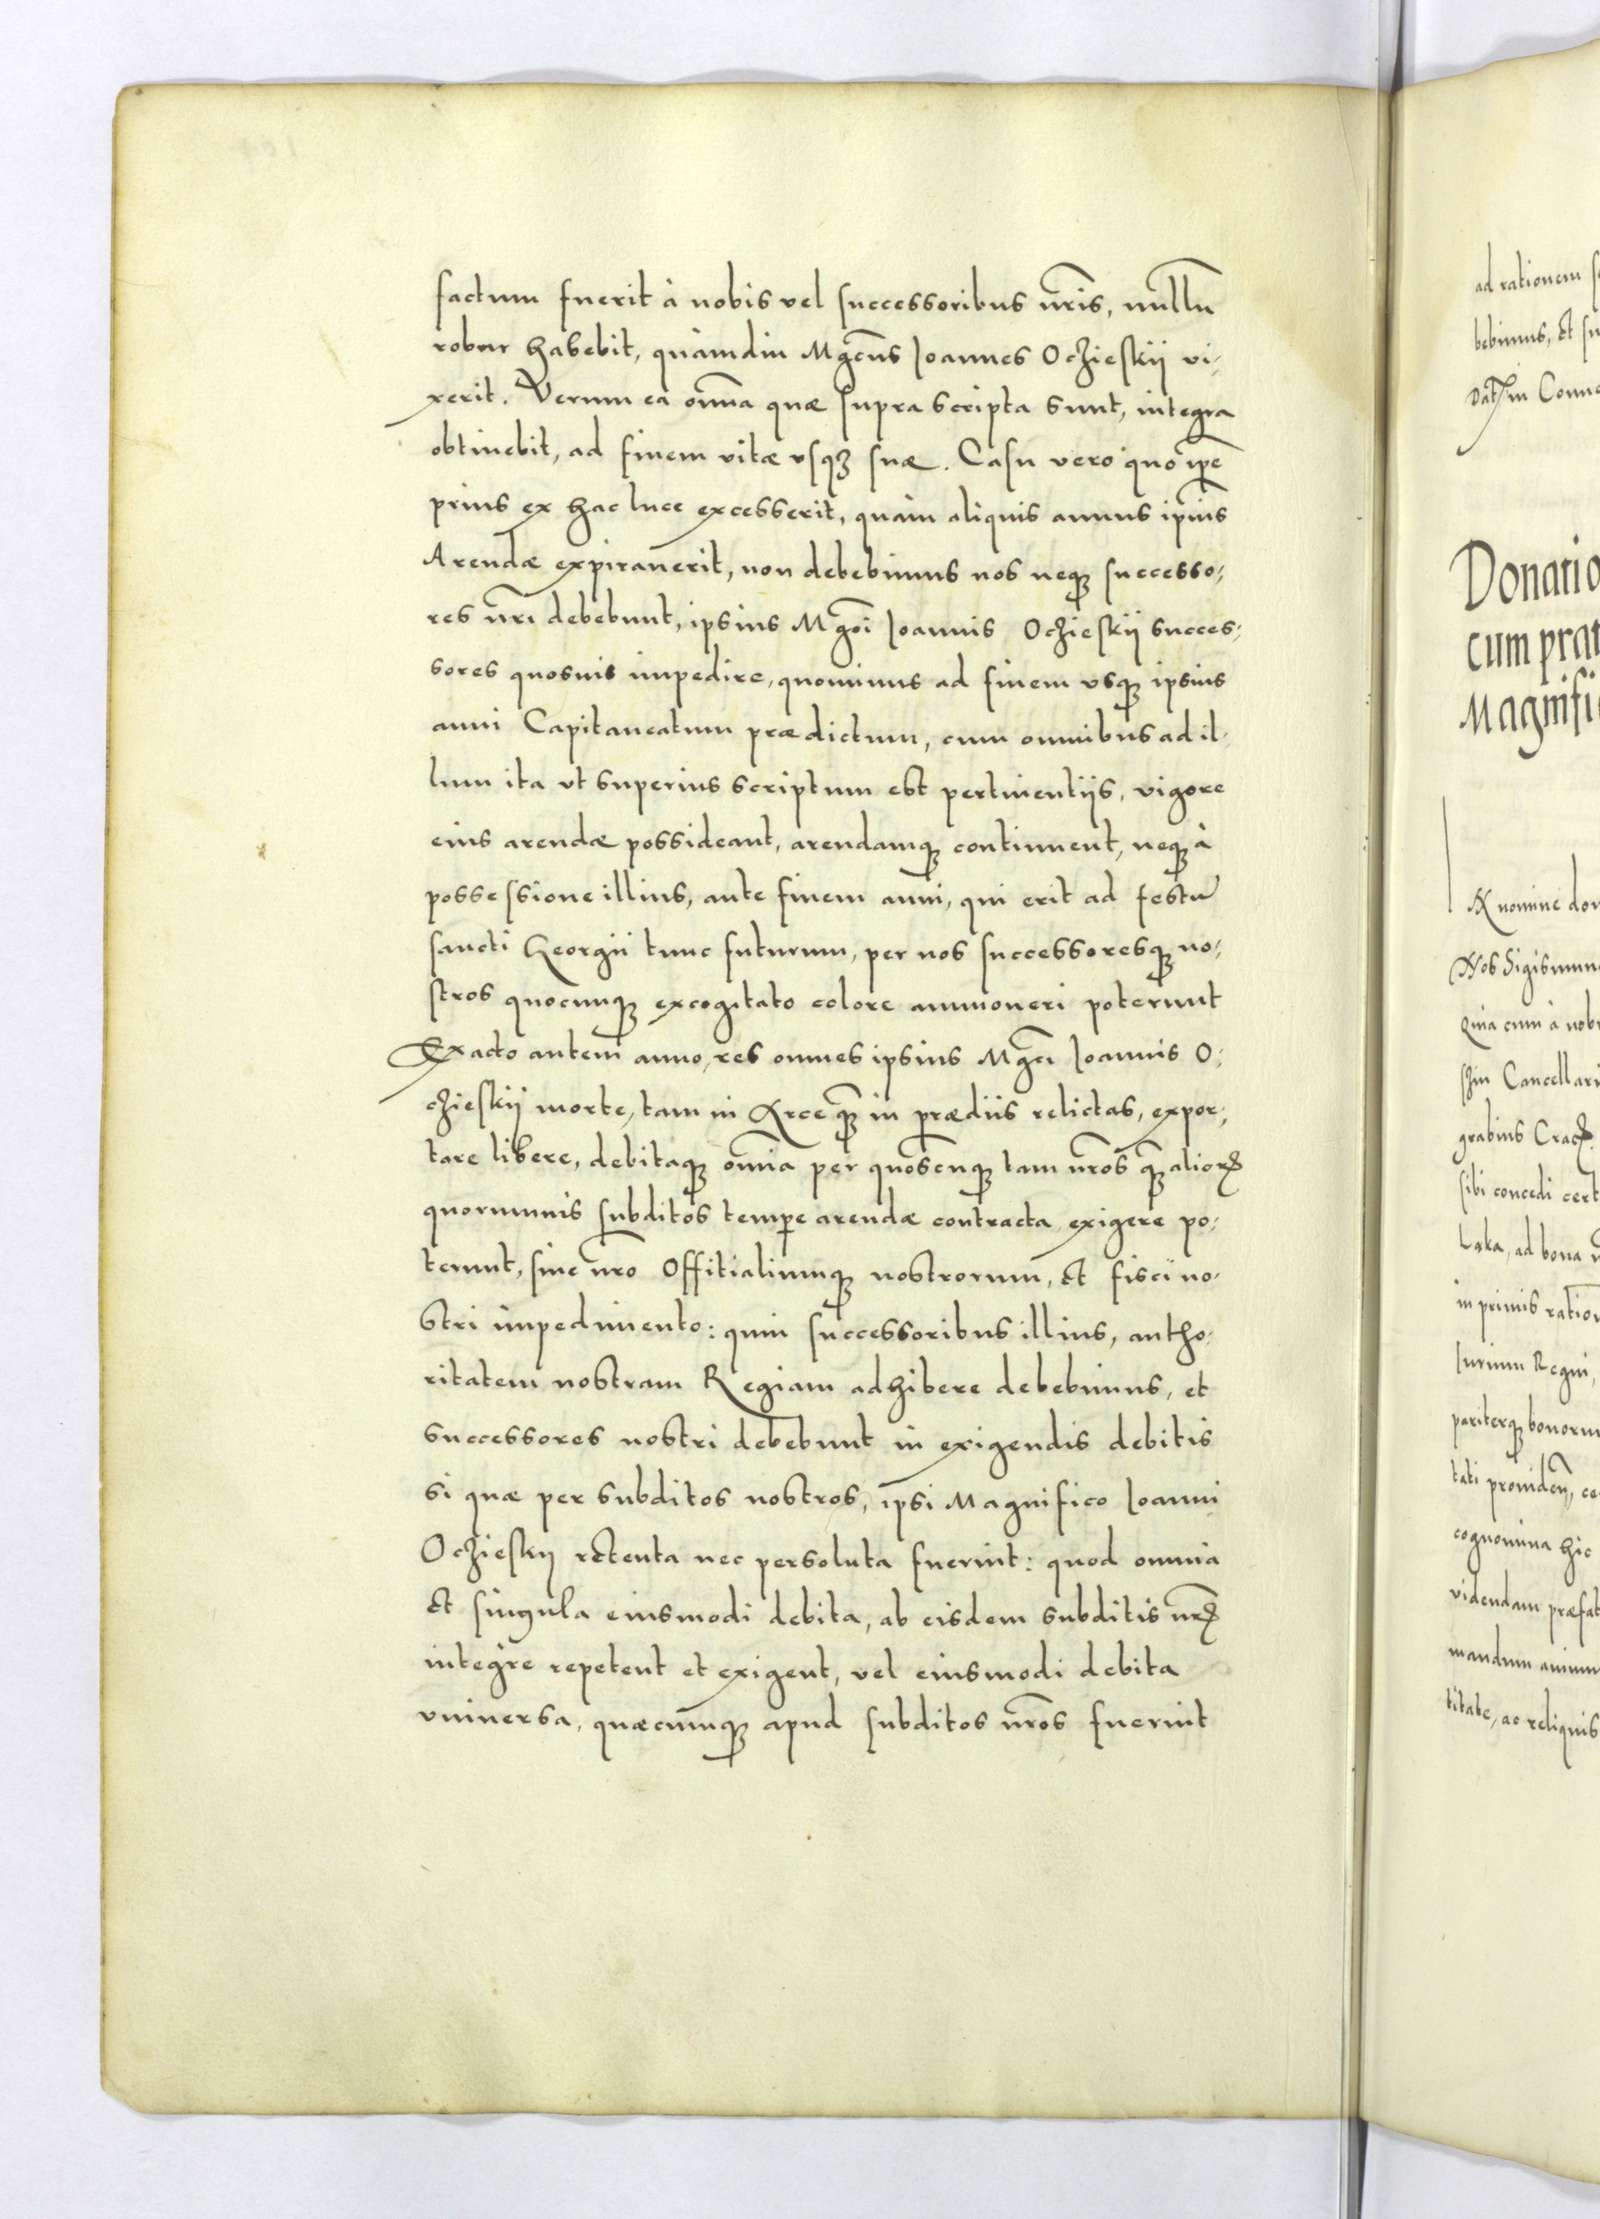 factum fuerit à nobis vel successoribus nr̃is, nullũ
robur habebit, quàmdiu Mg̃cus Ioannes Oczieskij vi-
xerit. Verum ea om̃ia quæ supra scripta sunt, integra
obtinebit, ad finem vitæ vsqꝫ suæ. Casu vero quo ip̃e
prius ex hac luce excesserit, quàm aliquis annus ip̃ius
Arendæ expirauerit, non debebimus nos neqꝫ successo-
res nr̃i debebunt, ipsius Mg̃ci Ioannis Oczieskij succes-
sores quosuis impedire, quominus ad finem vsqꝫ ipsius
anni Capitaneatum prædictum, cum omnibus ad il-
lum ita vt superius scriptum est pertinentijs, vigore
eius arendæ possideant, arendamqꝫ continuent, neqꝫ à
possessione illius, ante finem anni, qui erit ad festũ
sancti Georgii tunc futurum, per nos successoresqꝫ no-
stros quocunqꝫ excogitato colore ammoneri poterunt
Exacto autem anno, res omnes ipsius Mg̃ci Ioannis O-
czieskij morte, tam in Arce qꝫ̃ in prædiis relictas, expor-
tare libere, debitaqꝫ om̃ia per quoscunqꝫ tam nr̃os qꝫ̃ alioꝝ
quorumuis subditos temp̃e arendæ contracta exigere po-
terunt, sine nr̃o Offitialiumqꝫ nostrorum, et fisci no-
stri impedimento: quin successoribus illius, autho-
ritatem nostram Regiam adhibere debebimus, et
successores nostri debebunt in exigendis debitis
si quæ per subditos nostros, ipsi Magnifico Ioanni
Oczieskij retenta nec persoluta fuerint: quod omnia
et singula eiusmodi debita, ab eisdem subditis nr̃oꝝ
integre repetent et exigent, vel eiusmodi debita
vniuersa, quæcunqꝫ apud subditos nr̃os fuerint
ad rationem
bebimus, et
Dat̃ in
Donatio
cum
Magnifi
nomine
Nos Sigismun
Quia cum à nob
Cancellari
grabius Crac̃
sibi concedi cert
Laka, ad bona
in primis ration
Iurium Regni,
pariterqꝫ bonorum
tati
cognomina hic
videndam præfat
mandum
titate, ac reliquis